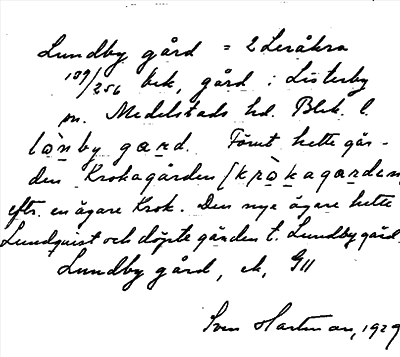 Lundby gård = 2 Leråkra
109/256 bek. gård i Listerby
sn. Medelstads hd. Blek. l.
lo̱nby gɑrd. Förut hette går-
den Krokagården [krò̱kagɑrden
eftr. en ägare Krok. Den nye ägare hette
Lundquist och döpte gården t. Lundby gård.
Lundby gård, ek, G11
Sven Hartman, 1929